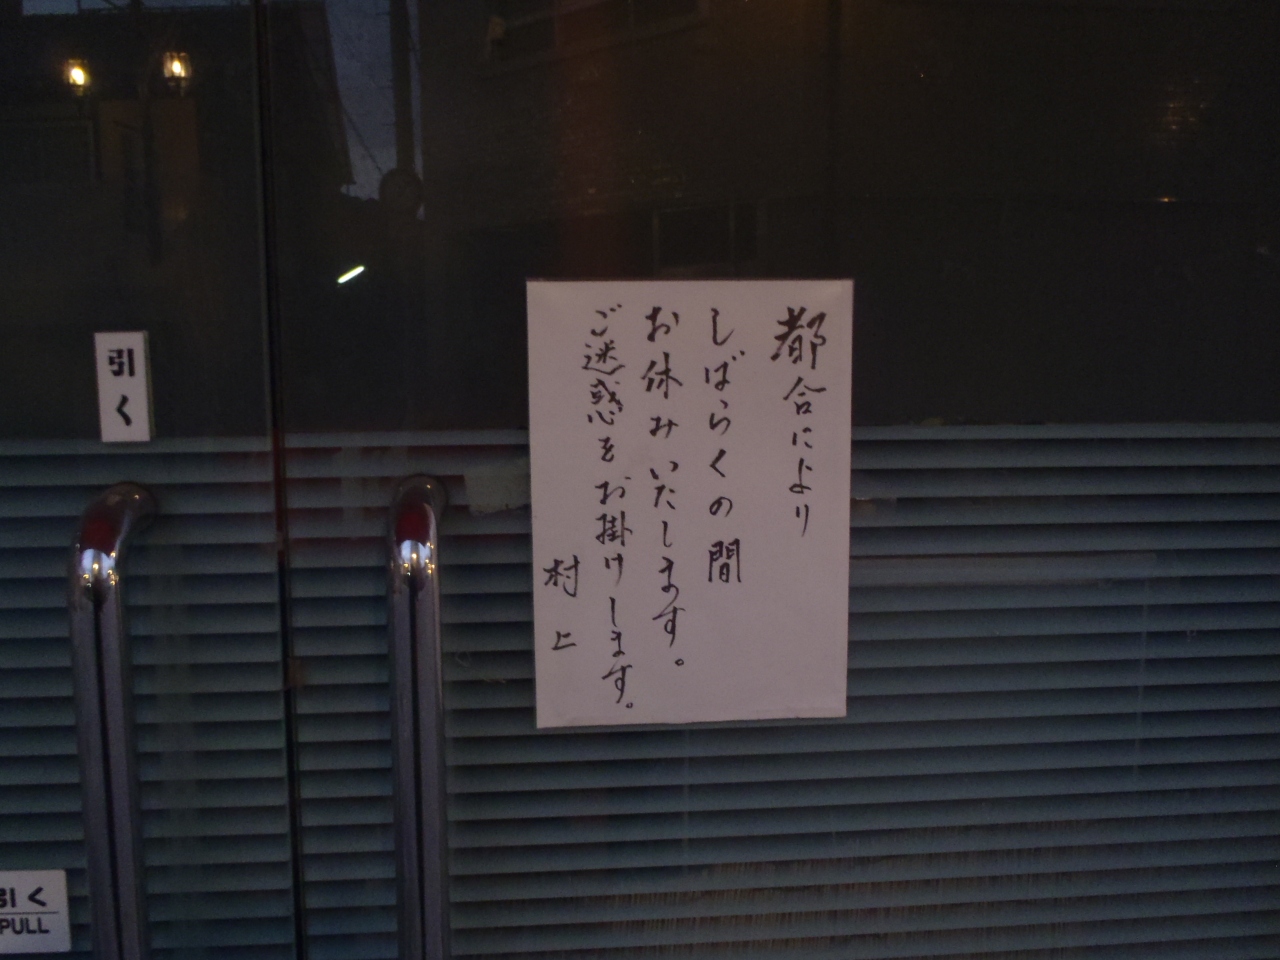 都合により
しばらくの間
お休みいたします。
ご迷惑をお掛けします。
村上
引く
引く
PULL